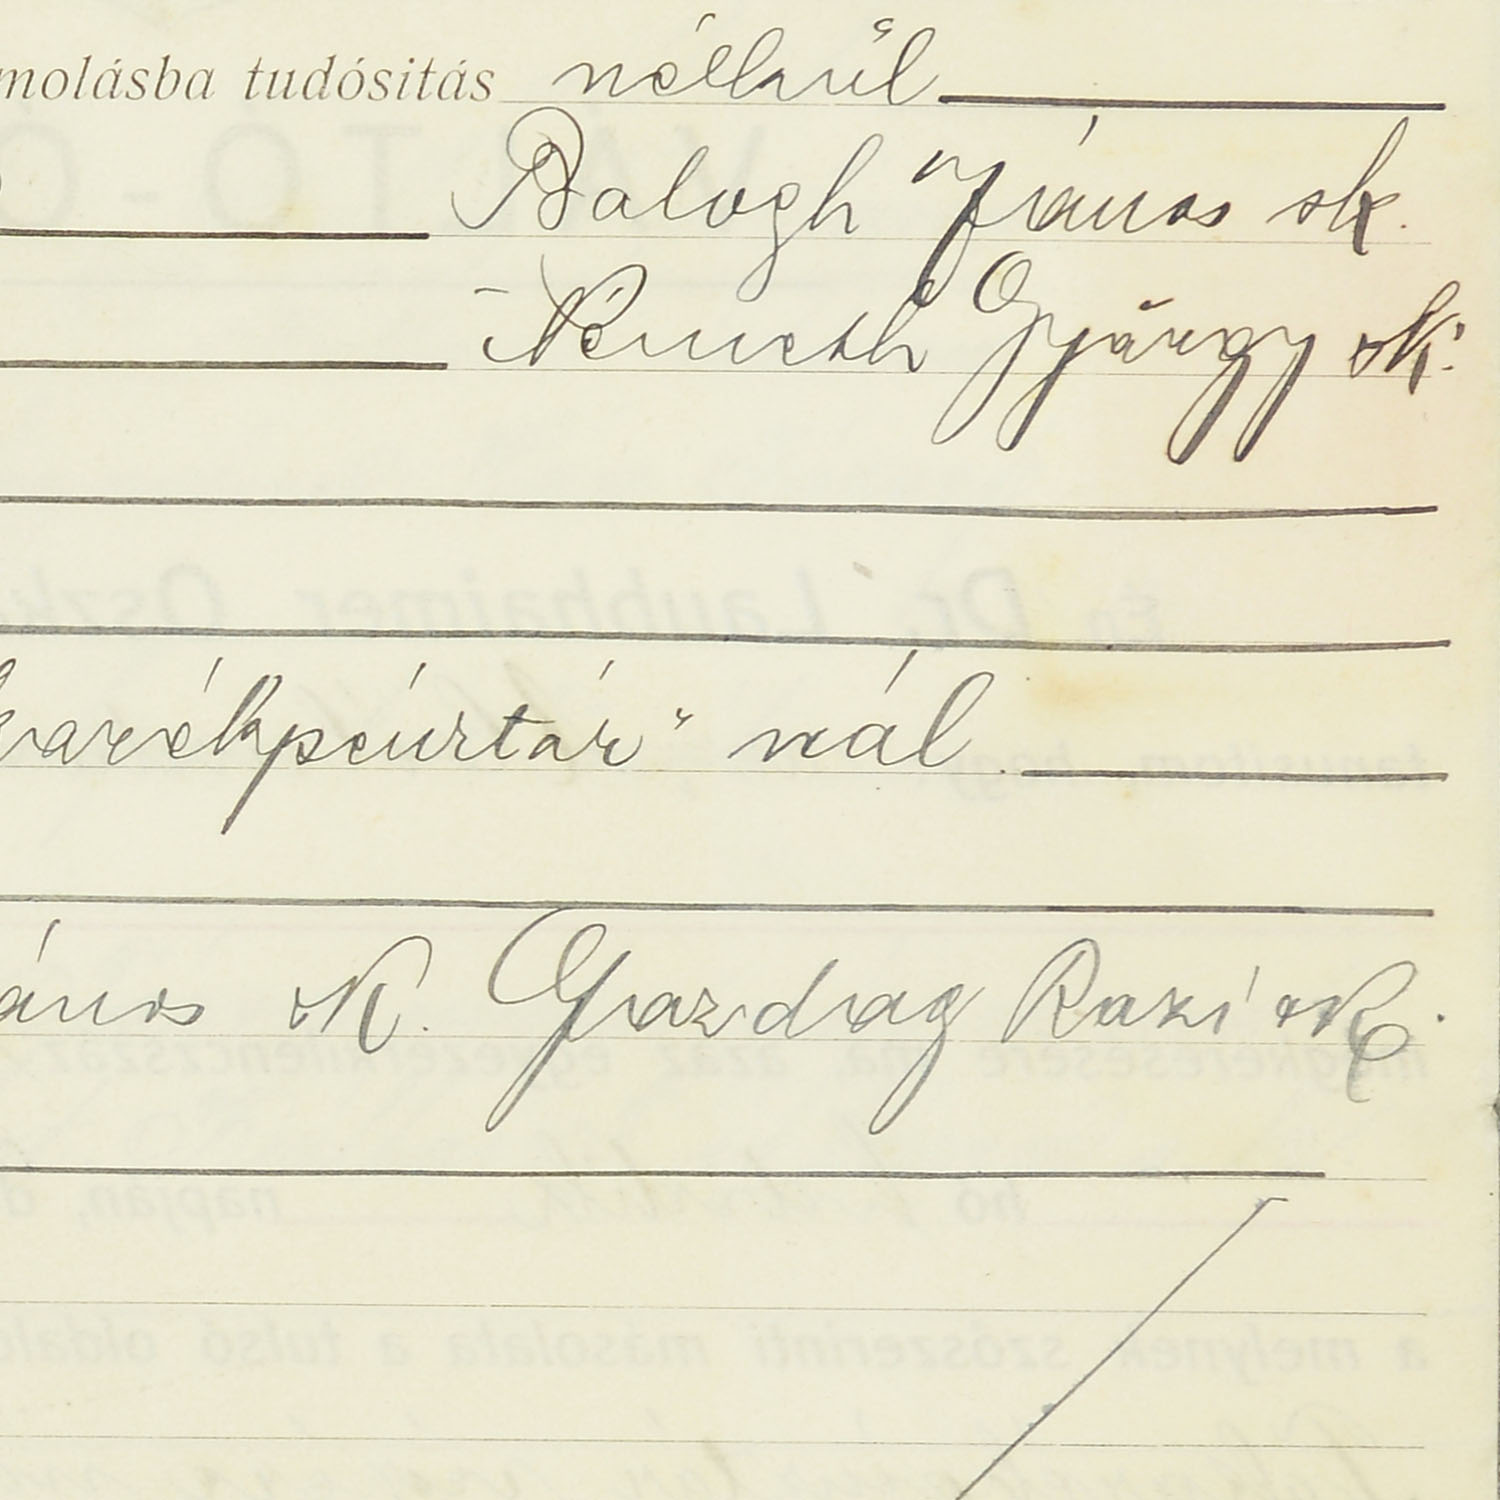 molásba tudósitás nélkül
Balogh János sk.
Németh György sk.
karékpénztár" nál
ános sk. Gazdag Rozi sk.